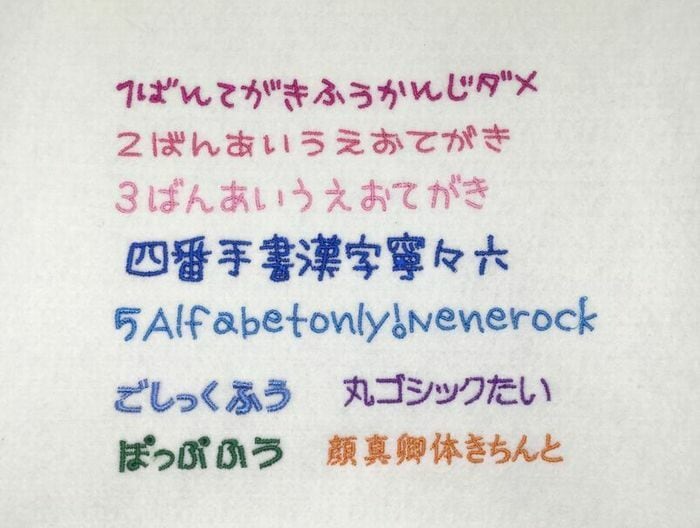 1ばんてがきふうかんじダメ
2ばんあいうえおてがき
3ばんあいうえおてがき
四番手書漢字寧々六
5Alfabetonly!Nenerock
ごしっくふう 丸ゴシックたい
ぽっぷふう 顔真卿体きちんと